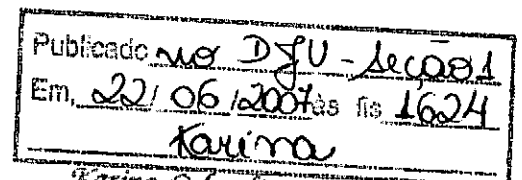 Publicado no DJU - Seção 1
Em, 22/06/2007 às fls 1624
Karina
Karina